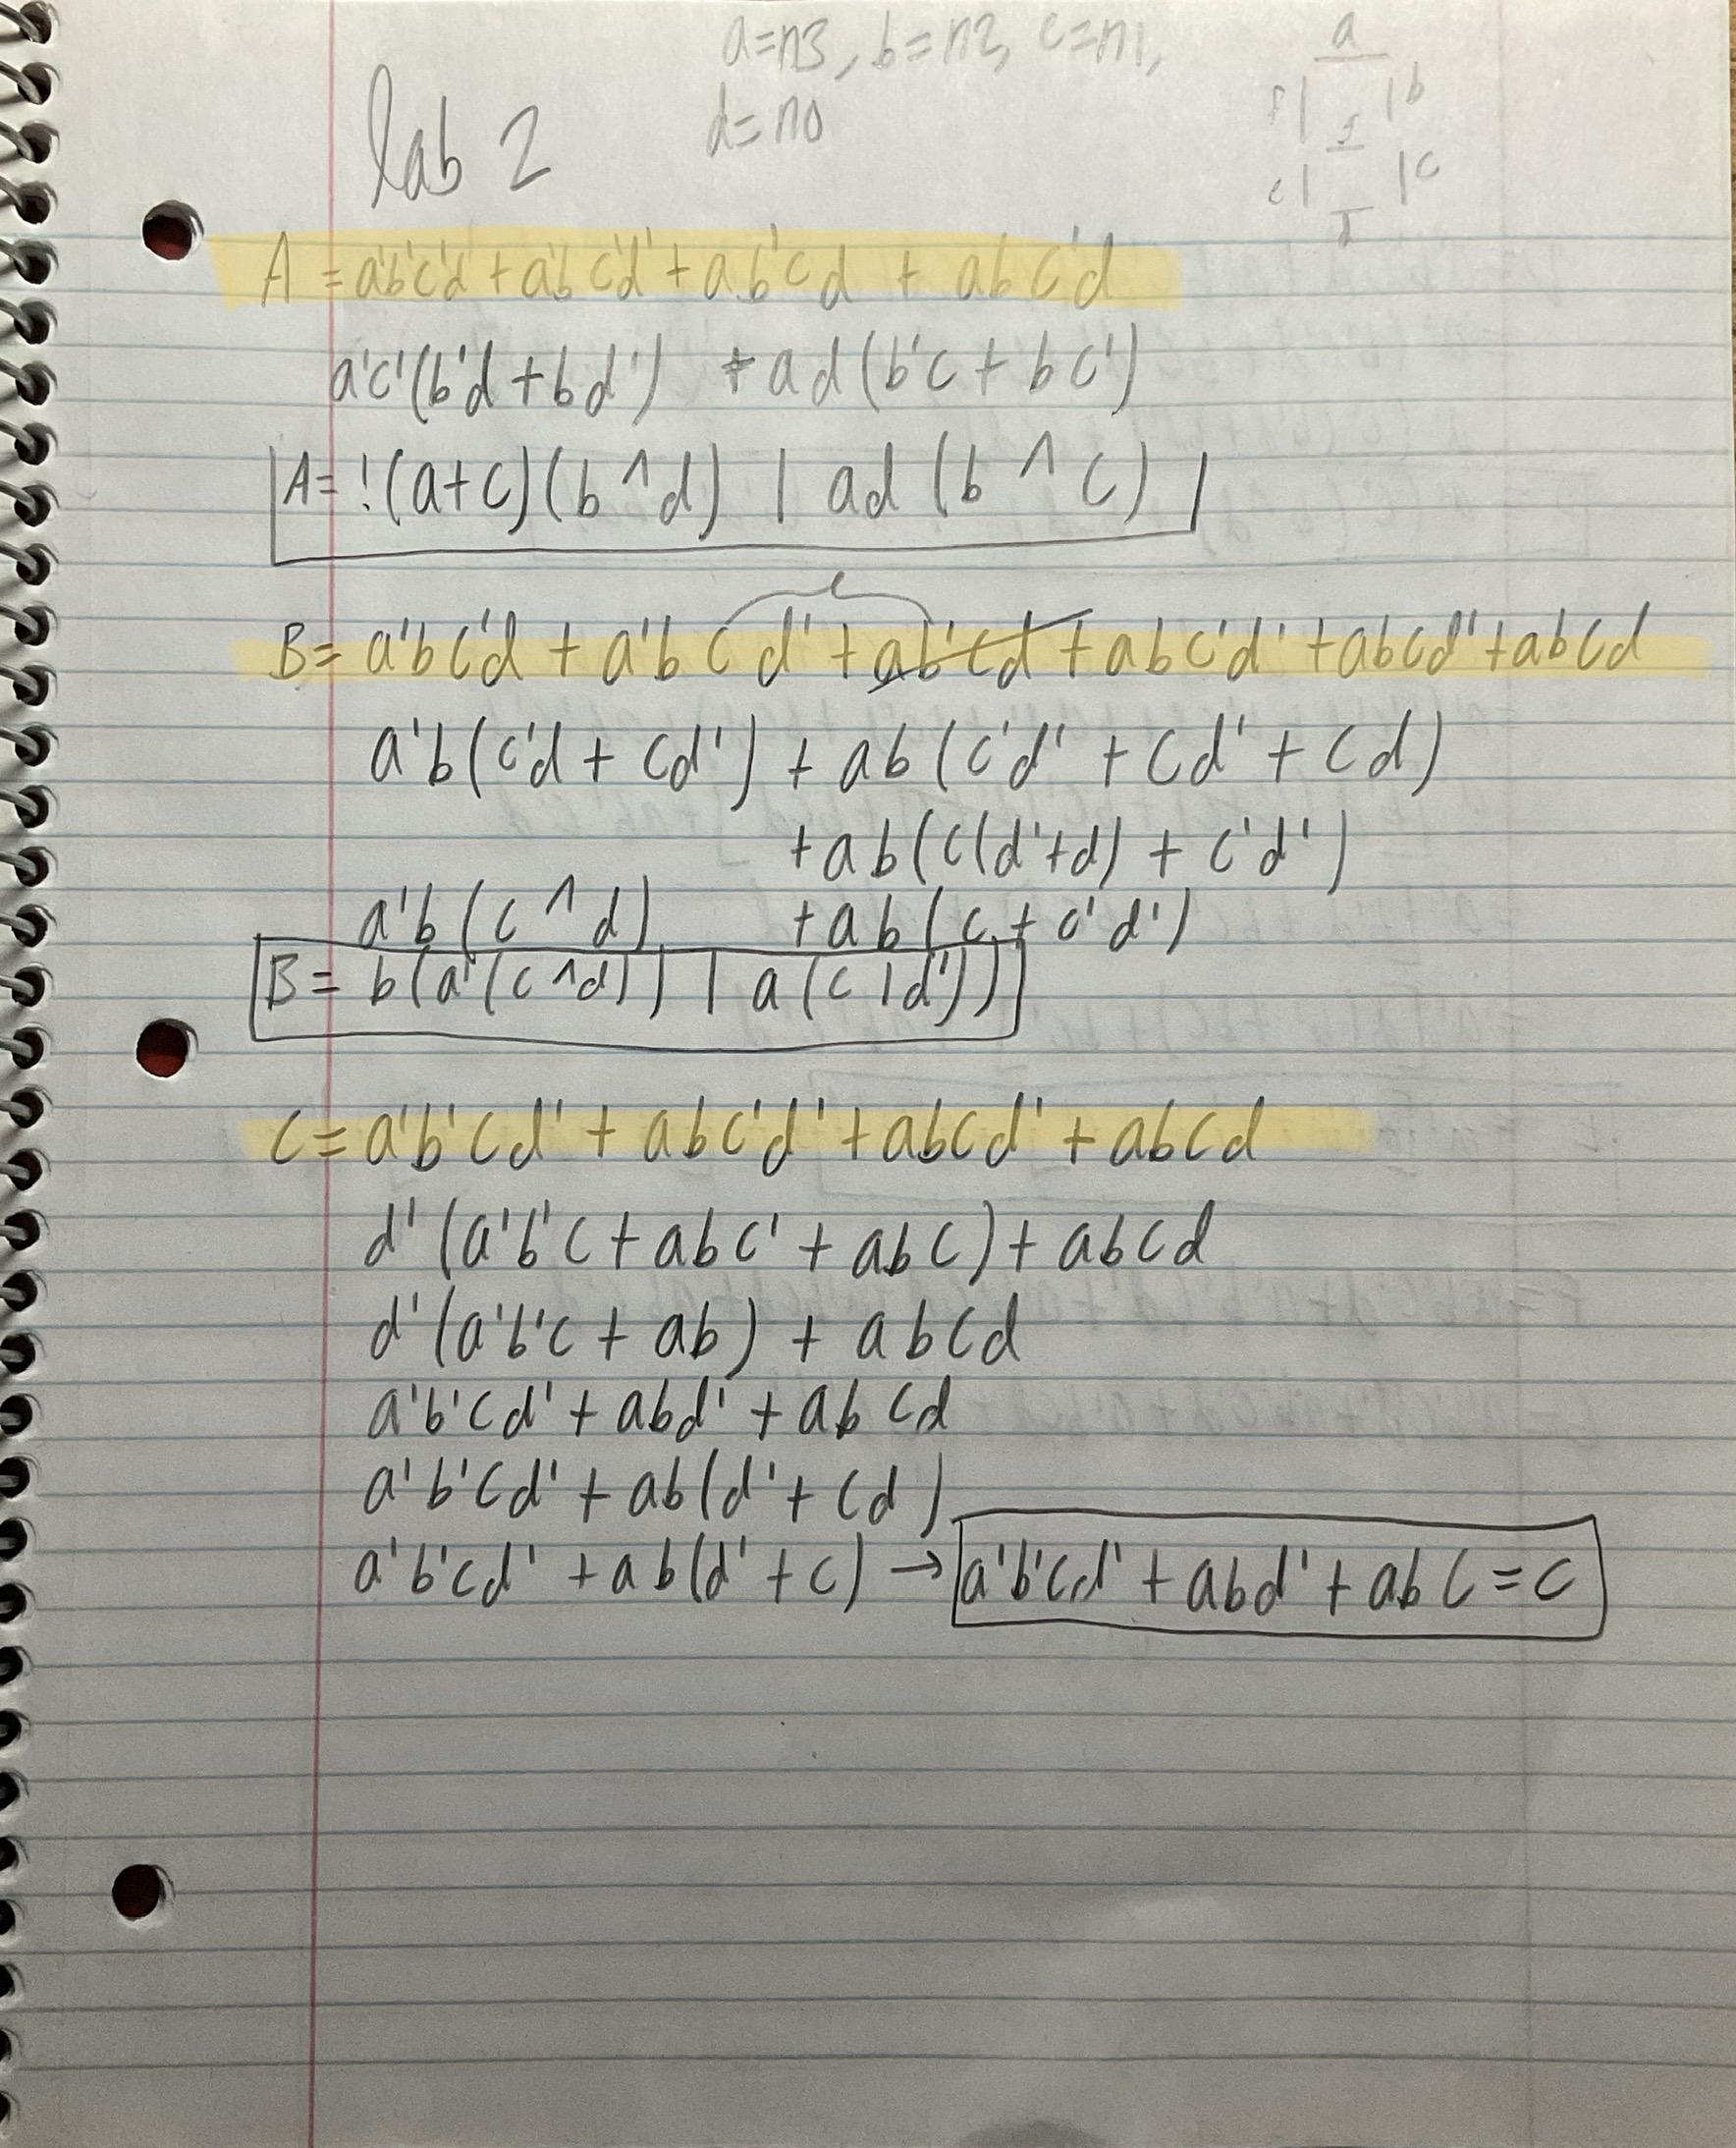 a=n3, b=n2, c=n1,
d=n0
a
f b
g
e c
d
lab 2
A = a'b'c'd + a'bc'd' + ab'cd + abc'd
a'c'(b'd + bd') + ad(b'c + bc')
A= !(a+c)(b^d) | ad (b^c)
B= a'bc'd + a'bcd' + ab'cd + abc'd' + abcd' + abcd
a'b(c'd + cd') + ab(c'd' + cd' + cd)
+ ab(c(d'+d) + c'd')
a'b(c^d) + ab(c + c'd')
B= b(a'(c^d)) | a(c|d'))
C= a'b'cd' + abc'd' + abcd' + abcd
d'(a'b'c + abc' + abc) + abcd
d'(a'b'c + ab) + abcd
a'b'cd' + abd' + abcd
a'b'cd' + ab(d' + cd)
a'b'cd' + ab(d' + c) → a'b'cd' + abd' + abc = C